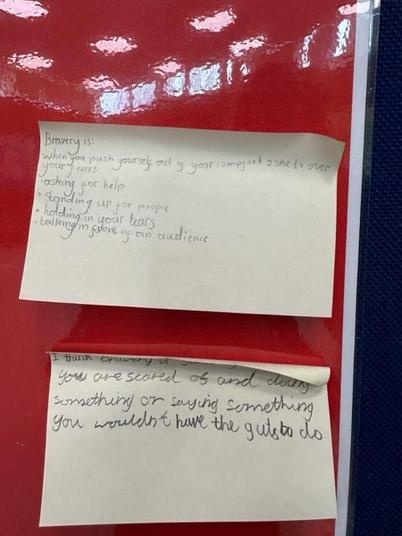 Bravery is:
• when you push yourself out of your comfort zone to over
your fears
• asking for help
• standing up for people
• holding in your tears
• talking in front of an audience
I think bravery is
you are scared of and doing
something or saying something
you wouldn't have the guts to do